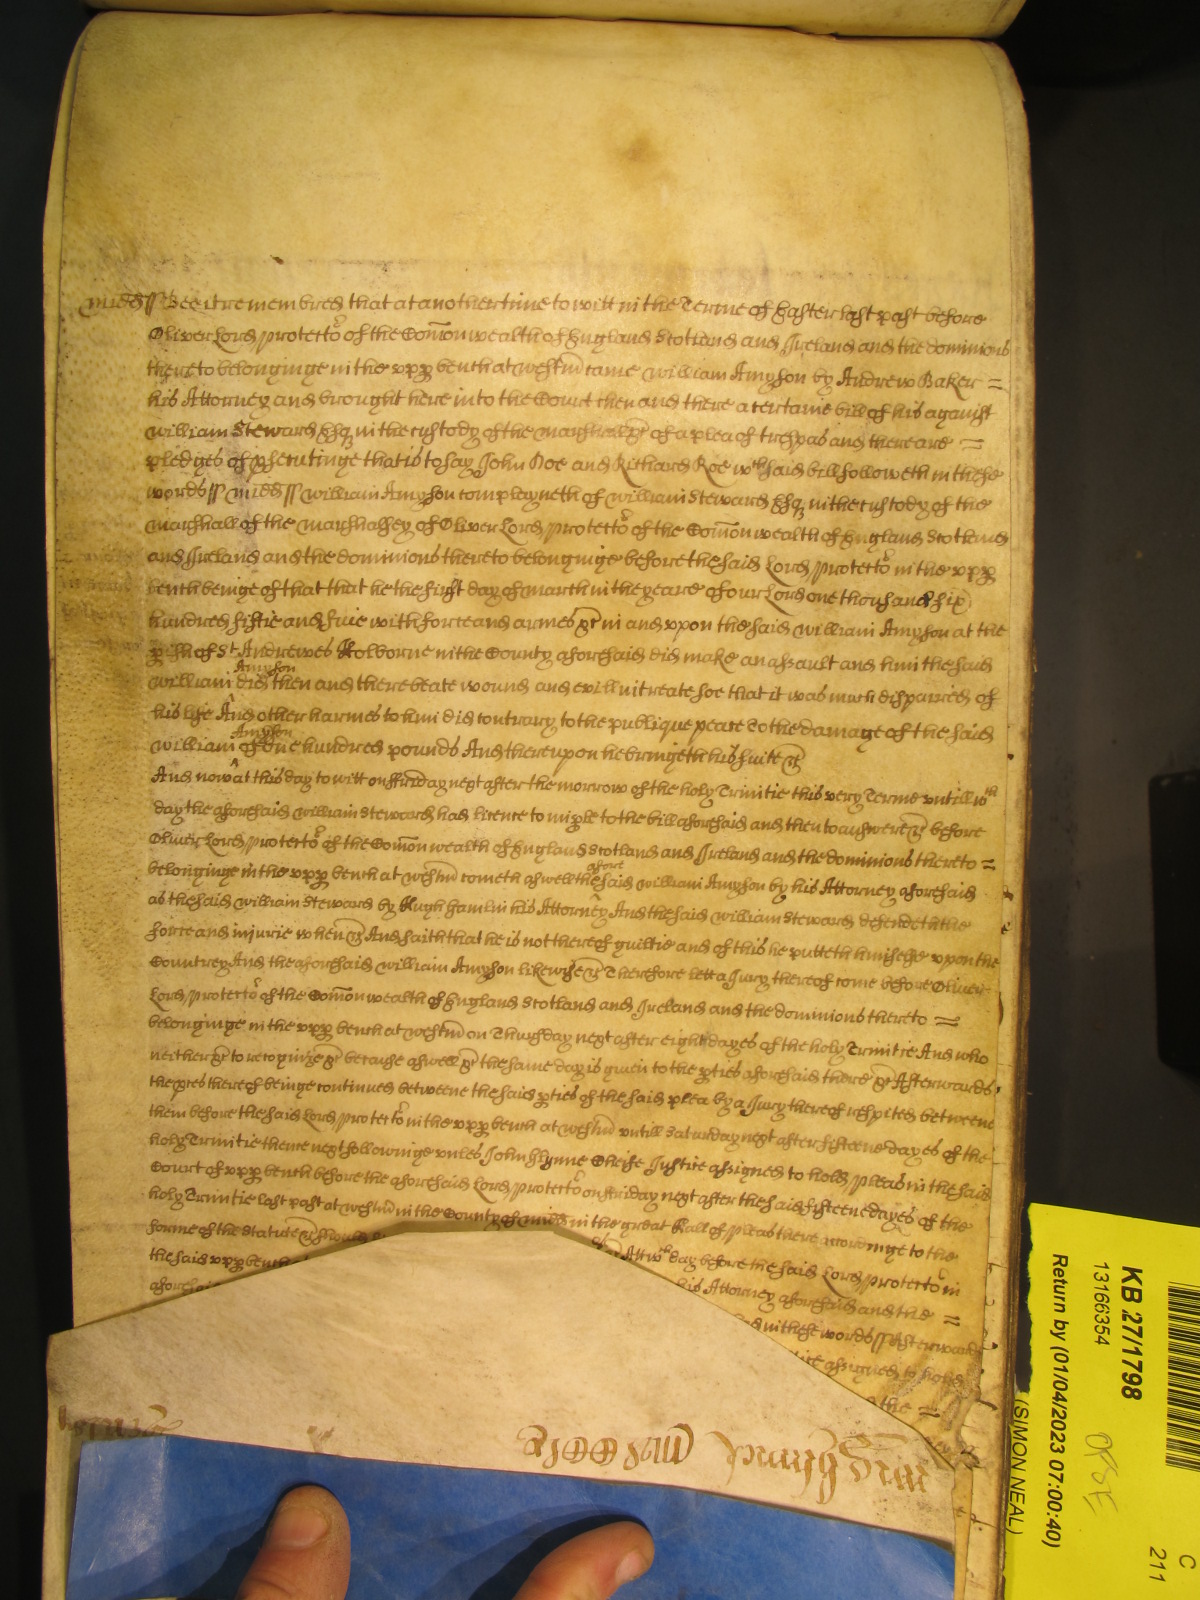 Midd ss Bee it remembred that at another time to witt in the Terme of Easter last past before
Oliver Lord Protector of the Comonwealth of England Scotland and Ireland and the dominions
thereto belonginge in the upp bench at Westm came William Amyson by Andrew Baker =
his Attorney and brought here into the Court then and there a certaine bill of his against
William Steward Esq in the custody of the marshall &c of a plea of trespas and there are =
pledges of psecutinge that is to say John Doe and Richard Roe wch said bill followeth in these
words ss Midd ss William Amyson complayneth of William Steward Esq in the custody of the
marshall of the marshalsey of Oliver Lord Protector of the Comonwealth of England Scotland
and Ireland and the dominions thereto belonginge before the said Lord Protector in the upp
bench beinge of that that he the first day of March in the yeare of our Lord one thousand six
hundred fiftie and five with force and armes &c in and upon the said William Amyson at the
pish of St Andrewes Holborne in the County aforesaid did make an assault and him the said
Amyson
William did then and there beate wound and evill intreate soe that it was much dispaired of
his life And other harmes to him did contrary to the publique peace To the damage of the said
Amyson
William of One hundred pounds And thereupon he bringeth his suite &c
And now at this day to witt on ffriday next after the morrow of the holy Trinitie this very Terme untill wch
day the aforesaid William Steward had licence to imple to the bill aforesaid and then to answere &c before
Oliver Lord Protector of the Comonwealth of England Scotland and Ireland and the dominions thereto =
afore
belonginge in the upp bench at Westm cometh aswell the said William Amyson by his Attorney aforesaid
as the said William Steward by Hugh Hamlin his Attorney And the said William Steward defendeth the
force and injurie when &c And saith that he is not thereof guiltie and of this he putteth himselfe upon the
Countrey And the aforesaid William Amyson likewise &c Therefore lett a Jury thereof come before Oliver
Lord Protector of the Comonwealth of England Scotland and Ireland and the dominions thereto =
belonginge in the upp bench at Westm on Thursday next after eight dayes of the holy Trinitie And who
neither &c to recognize &c because aswell &c the same day is given to the pties aforesaid there &c Afterwards
the pces thereof beinge continued betweene the said pties of the said plea by a Jury thereof respited betweene
them before the said Lord Protector in the upp bench at Westm untill Saturday next after fifteene dayes of the
holy Trinitie thence next followinge unles John Glynne Cheife Justice assigned to hold pleas in the said
Court of upp bench before the aforesaid Lord Protector on ffriday next after the said fifteene dayes of the
holy Trinitie last past at Westm in the County of Midd in the great Hall of pleas there accordinge to the
forme of the statute &c should
Att wch day before the said Lord Protector in
the said upp bench
his Attorney aforesaid and the =
aforesaid
in these words ss Afterwards
assigned to hold
the =
KB 27/1798
13166354
Return by (01/04/2023 07:00:40)
(SIMON NEAL)
C
211